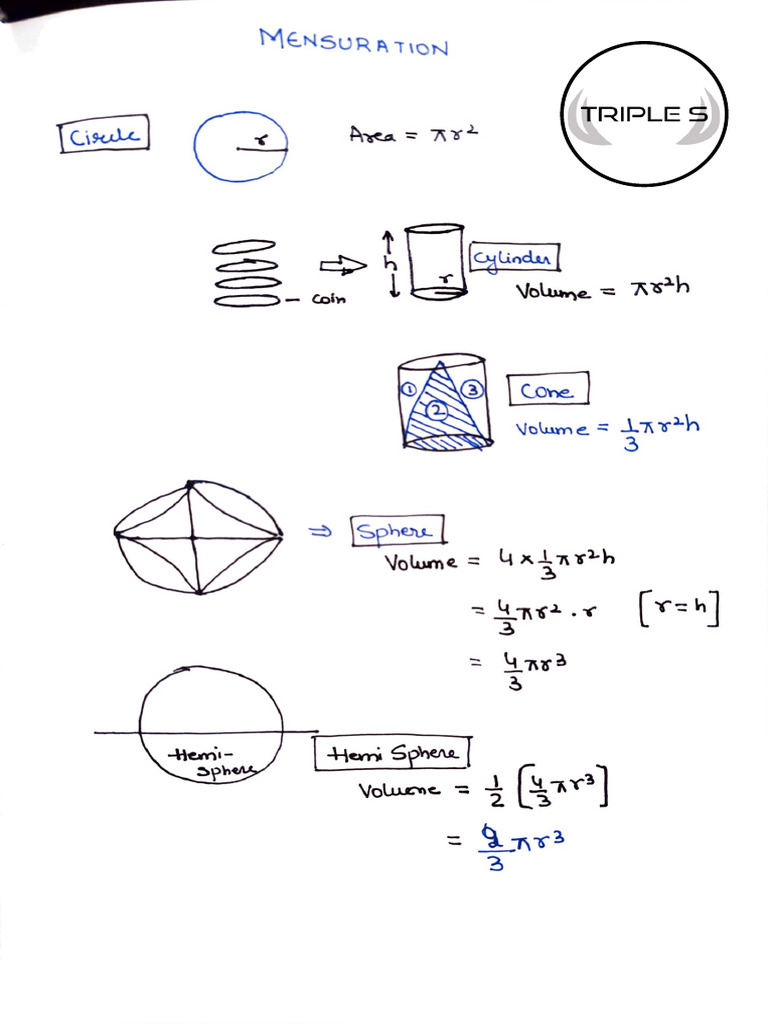 MENSURATION
TRIPLE S
Circle
r
Area = πr²
h
r
Cylinder
– coin
Volume = πr²h
① ② ③
Cone
Volume = 1/3 πr²h
⇒ Sphere
Volume = 4 × 1/3 πr²h
= 4/3 πr² . r [r = h]
= 4/3 πr³
Hemi-
sphere
Hemi Sphere
Volume = 1/2 [4/3 πr³]
= 2/3 πr³